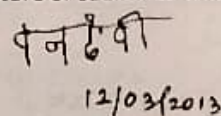 वनदेवी
12/03/2013